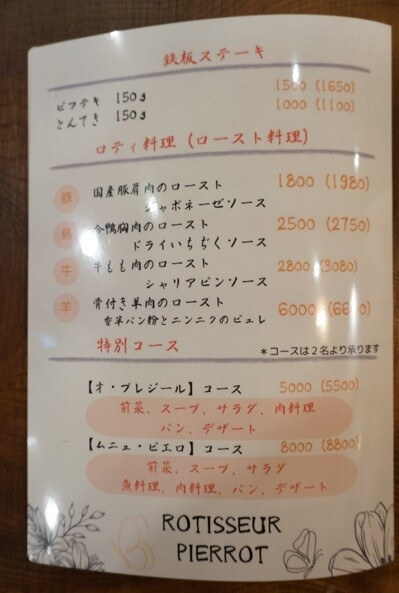 鉄板ステーキ
ビフテキ 150g 1500 (1650)
とんてき 150g 1000 (1100)
ロティ料理 (ロースト料理)
国産豚肩肉のロースト 1800 (1980)
シャポネーゼソース
鳥 合鴨胸肉のロースト 2500 (2750)
ドライいちぢくソース
牛 牛もも肉のロースト 2800 (3080)
シャリアピンソース
羊 骨付き羊肉のロースト 6000 (6600)
香草パン粉とニンニクのピュレ
特別コース *コースは2名より承ります
【オ・プレジール】コース 5000 (5500)
前菜、スープ、サラダ、肉料理
パン、デザート
【ムニュ・ピエロ】コース 8000 (8800)
前菜、スープ、サラダ
魚料理、肉料理、パン、デザート
ROTISSEUR
PIERROT